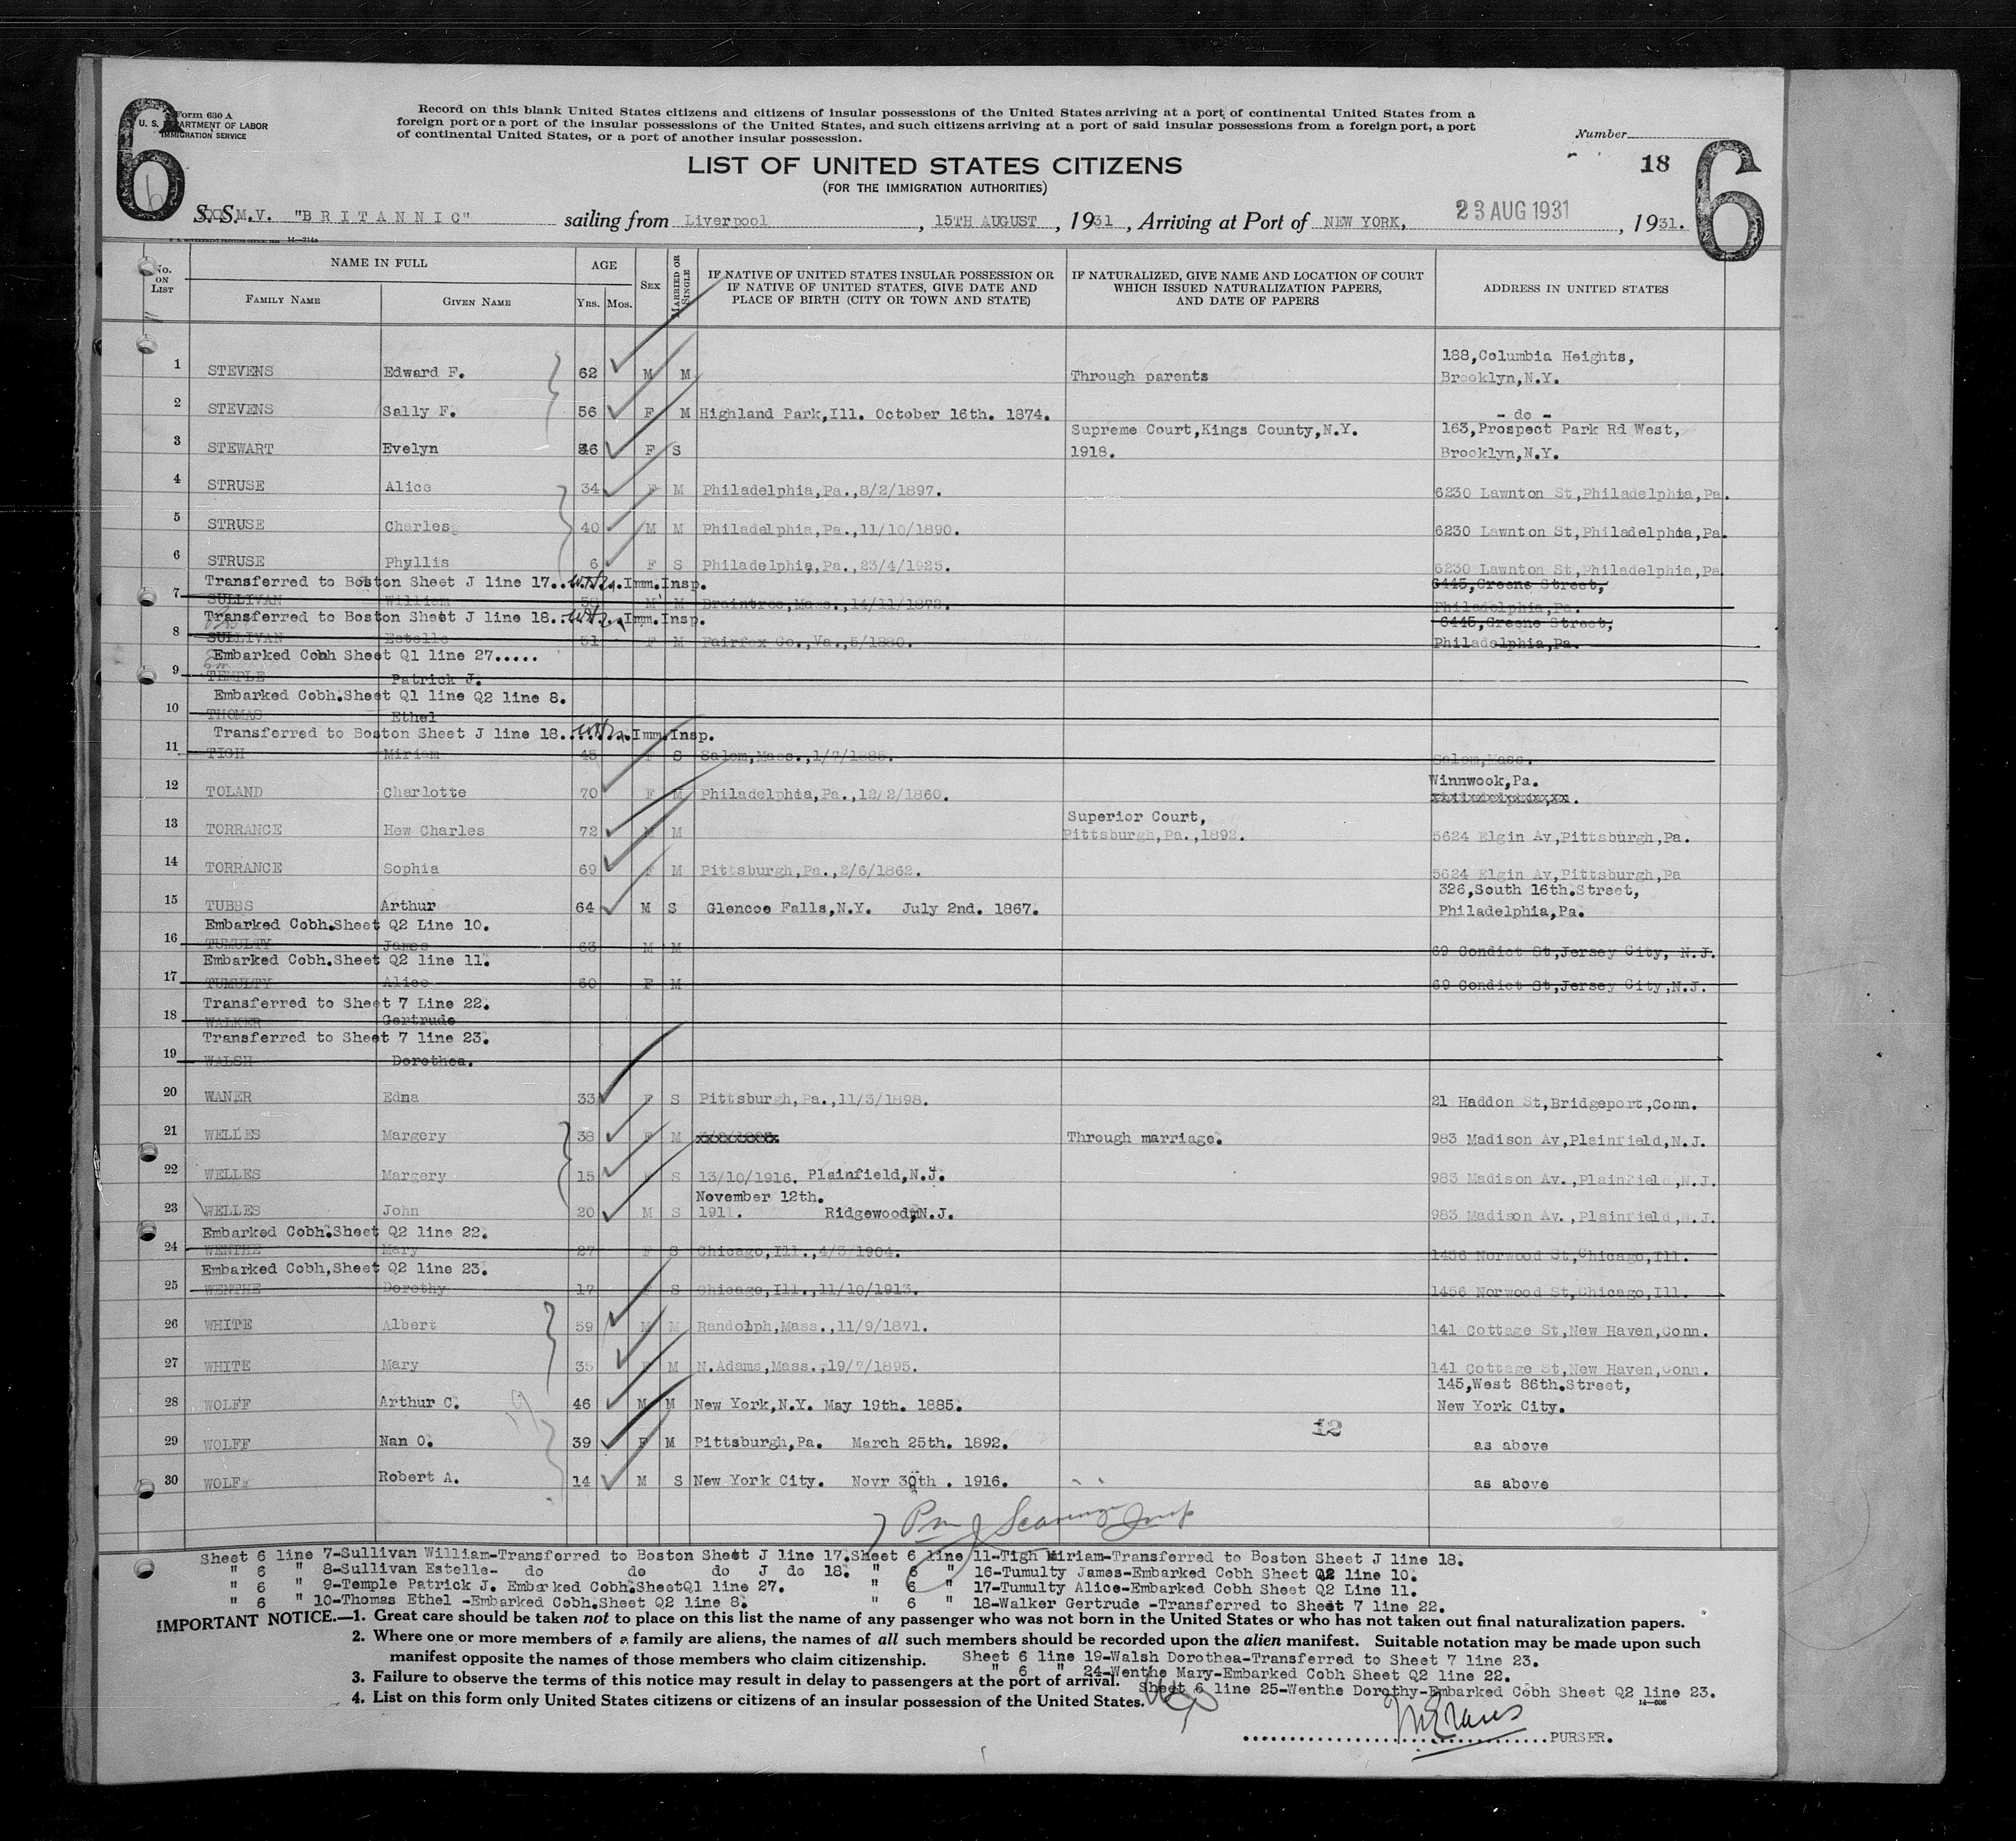 6
Form 630 A
U. S. DEPARTMENT OF LABOR
IMMIGRATION SERVICE
Record on this blank United States citizens and citizens of insular possessions of the United States arriving at a port of continental United States from a
foreign port or a port of the insular possessions of the United States, and such citizens arriving at a port of said insular possessions from a foreign port, a port
of continental United States, or a port of another insular possession.
Number
18
6
LIST OF UNITED STATES CITIZENS
(FOR THE IMMIGRATION AUTHORITIES)
S. S. M.V. "BRITANNIC" sailing from Liverpool, 15TH AUGUST, 1931, Arriving at Port of NEW YORK, 23 AUG 1931, 1931.
14—214a
No. ON LIST NAME IN FULL AGE SEX MARRIED OR SINGLE IF NATIVE OF UNITED STATES INSULAR POSSESSION OR IF NATIVE OF UNITED STATES, GIVE DATE AND PLACE OF BIRTH (CITY OR TOWN AND STATE) IF NATURALIZED, GIVE NAME AND LOCATION OF COURT WHICH ISSUED NATURALIZATION PAPERS, AND DATE OF PAPERS ADDRESS IN UNITED STATES
FAMILY NAME GIVEN NAME YRS. MOS.
1 STEVENS Edward F. 62 M M Through parents 188,Columbia Heights, Brooklyn,N.Y.
2 STEVENS Sally F. 56 F M Highland Park,Ill. October 16th. 1874. - do -
3 STEWART Evelyn 46 F S Supreme Court,Kings County,N.Y. 1918. 163,Prospect Park Rd West, Brooklyn,N.Y.
4 STRUSE Alice 34 F M Philadelphia,Pa.,8/2/1897. 6230 Lawnton St,Philadelphia,Pa.
5 STRUSE Charles 40 M M Philadelphia,Pa.,11/10/1890. 6230 Lawnton St,Philadelphia,Pa.
6 STRUSE Phyllis 6 F S Philadelphia,Pa.,23/4/1925. 6230 Lawnton St,Philadelphia,Pa
Transferred to Boston Sheet J line 17. Imm.Insp.
7 SULLIVAN William 58 M M Braintree,Mass.,14/11/1872. 6445,Greene Street, Philadelphia,Pa.
Transferred to Boston Sheet J line 18. Imm.Insp.
8 SULLIVAN Estelle 51 F M Fairfax Co.,Va.,5/1880. 6445,Greene Street, Philadelphia,Pa.
Embarked Cobh Sheet Q1 line 27.....
9 TEMPLE Patrick J.
Embarked Cobh.Sheet Q1 line Q2 line 8.
10 THOMAS Ethel
Transferred to Boston Sheet J line 18. Imm.Insp.
11 TIGH Miriam 45 F S Salem,Mass.,1/7/1885. Salem,Mass.
12 TOLAND Charlotte 70 F M Philadelphia,Pa.,12/2/1860. Winnwook,Pa.
13 TORRANCE Hew Charles 72 M M Superior Court, Pittsburgh,Pa.,1892. 5624 Elgin Av,Pittsburgh,Pa.
14 TORRANCE Sophia 69 F M Pittsburgh,Pa.,2/6/1862. 5624 Elgin Av,Pittsburgh,Pa
15 TUBBS Arthur 64 M S Glencoe Falls,N.Y. July 2nd. 1867. 326,South 16th.Street, Philadelphia,Pa.
Embarked Cobh.Sheet Q2 Line 10.
16 TUMULTY James 63 M M 69 Condict St,Jersey City, N.J.
Embarked Cobh.Sheet Q2 line 11.
17 TUMULTY Alice 60 F M 69 Condict St,Jersey City,N.J.
Transferred to Sheet 7 Line 22.
18 WALKER Gertrude
Transferred to Sheet 7 line 23.
19 WALSH Dorothea.
20 WANER Edna 33 F S Pittsburgh,Pa.,11/3/1898. 21 Haddon St,Bridgeport,Conn.
21 WELLES Margery 38 F M Through marriage. 983 Madison Av,Plainfield,N.J.
22 WELLES Margery 15 S 13/10/1916. Plainfield,N.J. 983 Madison Av.,Plainfield,N.J.
23 WELLES John 20 M S November 12th. 1911. Ridgewood,N.J. 983 Madison Av.,Plainfield,N.J.
Embarked Cobh.Sheet Q2 line 22.
24 WENTHE Mary 27 F S Chicago,Ill.,4/3/1904. 1456 Norwood St,Chicago,Ill.
Embarked Cobh,Sheet Q2 line 23.
25 WENTHE Dorothy 17 F S Chicago,Ill.,11/10/1913. 1456 Norwood St,Chicago,Ill.
26 WHITE Albert 59 M M Randolph,Mass.,11/9/1871. 141 Cottage St,New Haven,Conn.
27 WHITE Mary 35 F M N.Adams,Mass.,19/7/1895. 141 Cottage St,New Haven,Conn.
28 WOLFF Arthur C. 46 M M New York,N.Y. May 19th. 1885. 145,West 86th.Street, New York City.
29 WOLFF Nan O. 39 F M Pittsburgh,Pa. March 25th. 1892. 12 as above
30 WOLFF Robert A. 14 M S New York City. Novr 30th . 1916. as above
Sheet 6 line 7-Sullivan William-Transferred to Boston Sheet J line 17. Sheet 6 line 11-Tigh Miriam-Transferred to Boston Sheet J line 18.
" 6 " 8-Sullivan Estelle- do do do J do 18. " 6 " 16-Tumulty James-Embarked Cobh Sheet Q2 line 10.
" 6 " 9-Temple Patrick J. Embarked Cobh.SheetQ1 line 27. " 6 " 17-Tumulty Alice-Embarked Cobh Sheet Q2 Line 11.
" 6 " 10-Thomas Ethel -Embarked Cobh.Sheet Q2 line 8. " 6 " 18-Walker Gertrude -Transferred to Sheet 7 line 22.
IMPORTANT NOTICE.—1. Great care should be taken not to place on this list the name of any passenger who was not born in the United States or who has not taken out final naturalization papers.
2. Where one or more members of a family are aliens, the names of all such members should be recorded upon the alien manifest. Suitable notation may be made upon such
manifest opposite the names of those members who claim citizenship. Sheet 6 line 19-Walsh Dorothea-Transferred to Sheet 7 line 23.
" 6 " 24-Wenthe Mary-Embarked Cobh Sheet Q2 line 22.
3. Failure to observe the terms of this notice may result in delay to passengers at the port of arrival.
Sheet 6 line 25-Wenthe Dorothy-Embarked Cobh Sheet Q2 line 23.
4. List on this form only United States citizens or citizens of an insular possession of the United States.
14—608
PURSER.